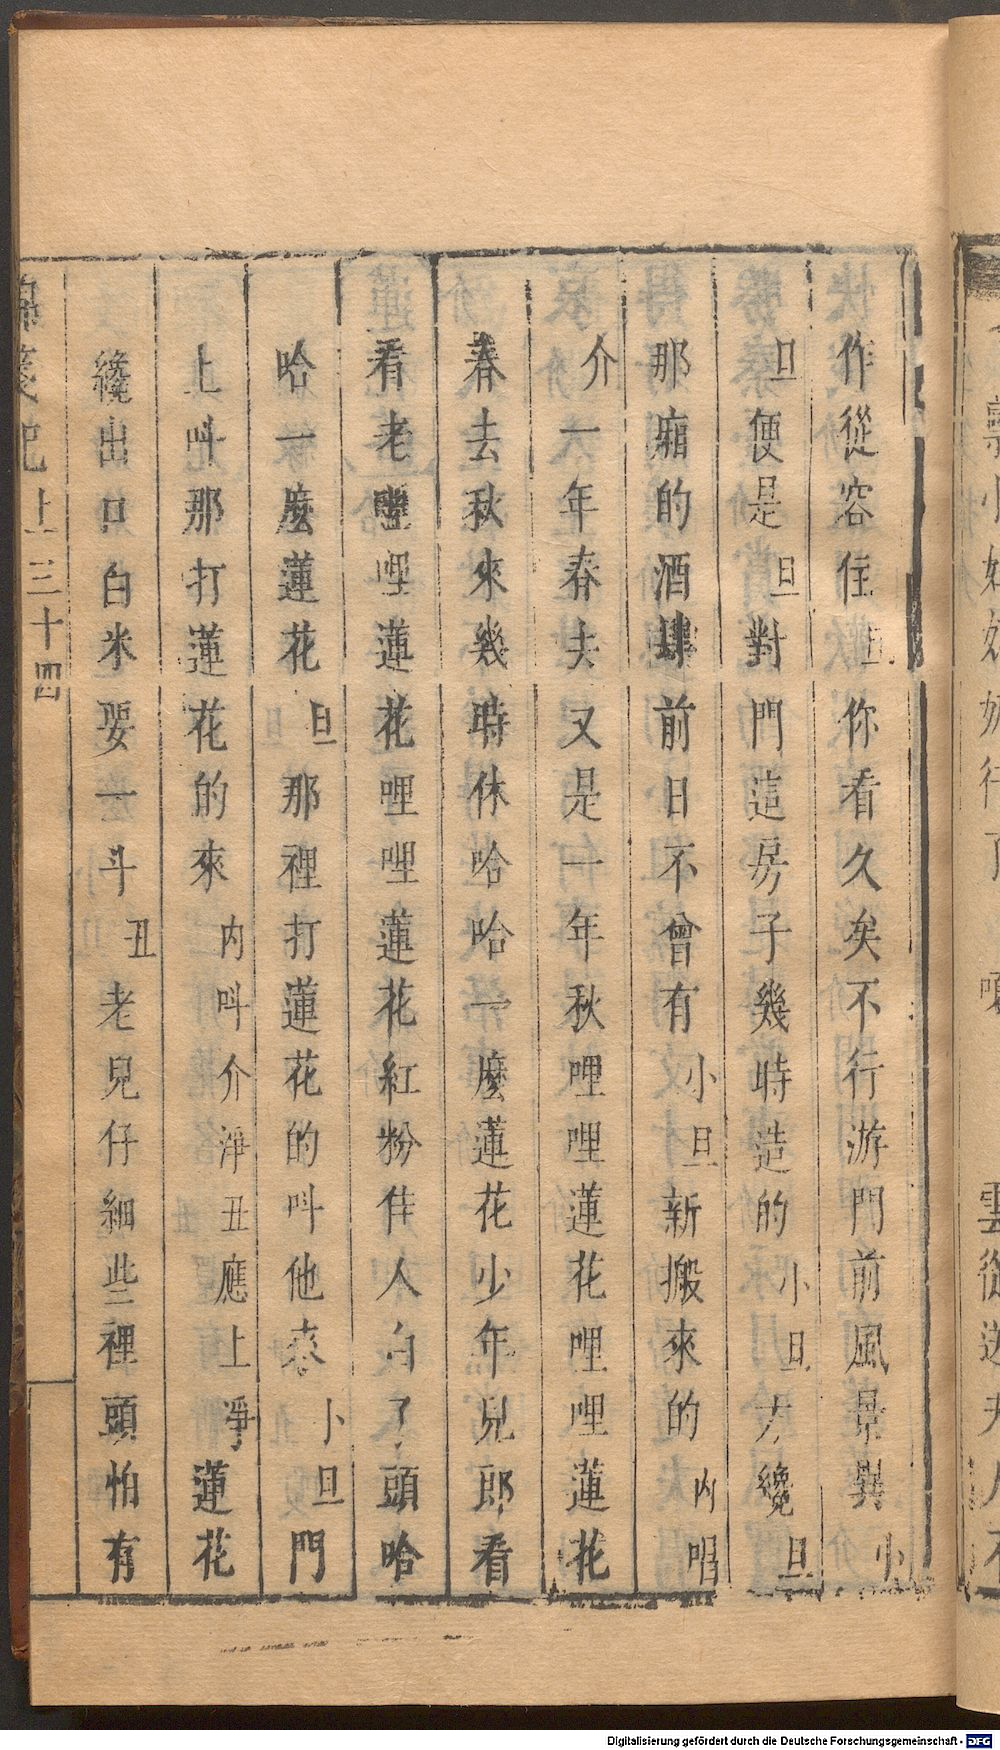 作從容住旦你看久矣不行游門前風景與小
旦便是旦對門這房子幾時造的小旦方纔旦
那廂的酒肆前日不曾有小旦新搬來的內唱
介一年春去又是一年秋哩哩蓮花哩哩蓮花
春去秋來幾時休哈哈一麼蓮花少年兒郎看
看老哩哩蓮花哩哩蓮花紅粉佳人白了頭哈
哈一麼蓮花旦那裡打蓮花的呌他來小旦門
上呌那打蓮花的來內呌介淨丑應上淨蓮花
纔出口白米要一斗丑老兒仔細些裡頭怕有
上 三十四
Digitalisierung gefördert durch die Deutsche Forschungsgemeinschaft - DFG